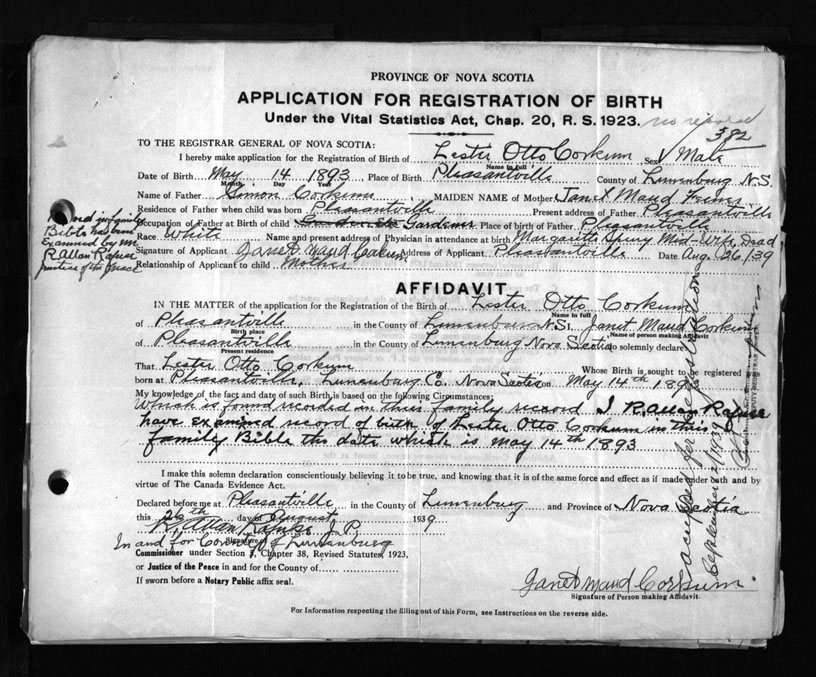 PROVINCE OF NOVA SCOTIA
APPLICATION FOR REGISTRATION OF BIRTH
Under the Vital Statistics Act, Chap. 20, R. S. 1923.
no
382
TO THE REGISTRAR GENERAL OF NOVA SCOTIA:
I hereby make application for the Registration of Birth of Lester Otto Corkum Sex Male
Name in full
Date of Birth May 14 1893 Place of Birth Pleasantville County of Lunenburg N.S.
Month Day Year
Name of Father Simon Corkum, MAIDEN NAME of Mother Janet Maud
Residence of Father when child was born Pleasantville Present address of Father Pleasantville
Occupation of Father at Birth of child Gardener Place of birth of Father Pleasantville
Race White Name and present address of Physician in attendance at birth Mid-Wife Dead
Signature of Applicant Janet Maud Corkum Address of Applicant Pleasantville Date Aug. 26/39
Relationship of Applicant to child Mother
Record in family
Bible has been
examined by me
R Allan Rafuse
Justice of the Peace
AFFIDAVIT
IN THE MATTER of the application for the Registration of the Birth of Lester Otto Corkum
Name in full
of Pleasantville in the County of Lunenburg N.S. I, Janet Maud Corkum
Birth place Name of person making Affidavit
of Pleasantville in the County of Lunenburg Nova Scotia do solemnly declare:
Present residence
That Lester Otto Corkum Whose Birth is sought to be registered was
born at Pleasantville, Lunenburg Co. Nova Scotia on May 14th 1893
My knowledge of the fact and date of such Birth, is based on the following Circumstances:
Which is found recorded in their family record I R Allan Rafuse
have examined record of birth of Lester Otto Corkum in this
family Bible this date which is May 14th 1893
I make this solemn declaration conscientiously believing it to be true, and knowing that it is of the same force and effect as if made under oath and by
virtue of The Canada Evidence Act.
Declared before me at Pleasantville in the County of Lunenburg and Province of Nova Scotia
this 26th day of August 1939
R Allan Rafuse J. P.
Signature
In and for County of Lunenburg
Commissioner under Section Chapter 38, Revised Statutes, 1923,
or Justice of the Peace in and for the County of
If sworn before a Notary Public affix seal.
Janet Maud Corkum.
Signature of Person making Affidavit.
For Information respecting the filling out of this Form, see Instructions on the reverse side.
accepted for registration
September 1939
DEPUTY REGISTRAR